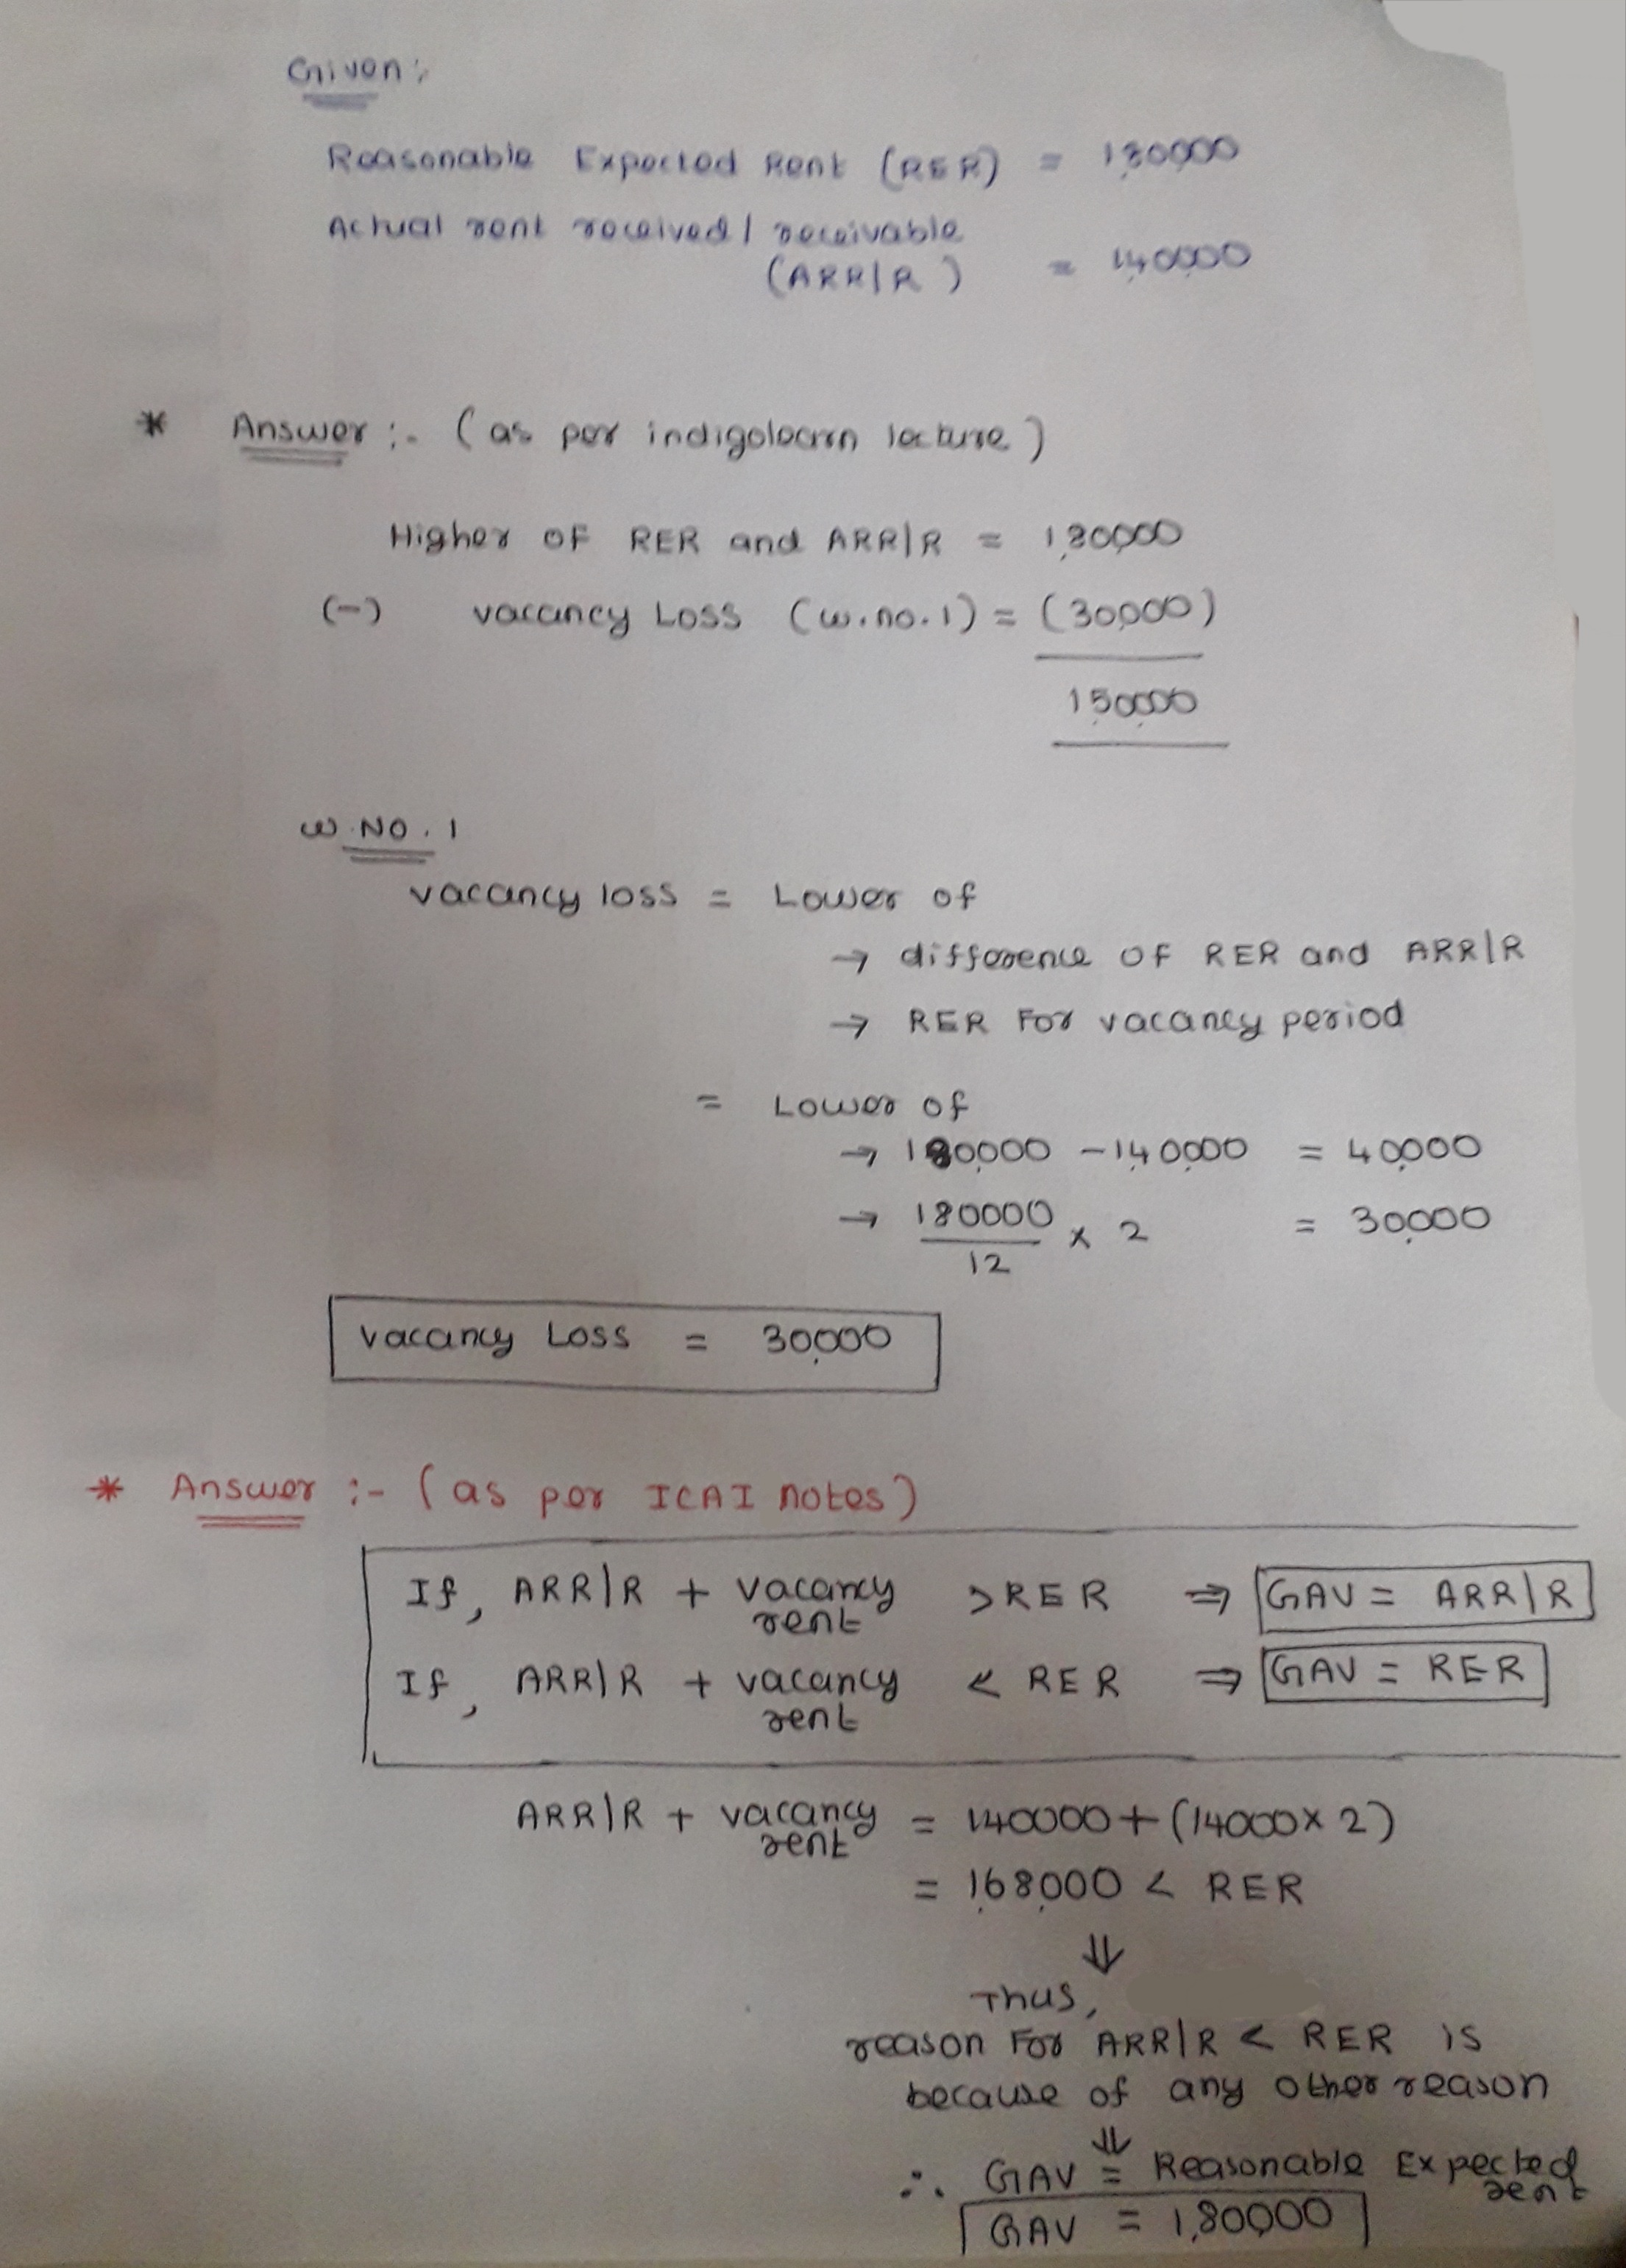 Given:
Reasonable Expected Rent (RER) = 1,80,000
Actual rent received / receivable
(ARR|R) = 1,40,000
* Answer :- (as per indigolearn lecture)
Higher OF RER and ARR|R = 1,80,000
(-) vacancy Loss (w.no.1) = (30,000)
1,50,000
W.NO.1
vacancy loss = Lower of
→ difference OF RER and ARR|R
→ RER For vacancy period
= Lower of
→ 180,000 - 1,40,000 = 40,000
→ 180000/12 x 2 = 30,000
Vacancy Loss = 30,000
* Answer :- (as per ICAI notes)
If, ARR|R + vacancy rent > RER ⇒ GAV = ARR|R
If, ARR|R + vacancy rent < RER ⇒ GAV = RER
ARR|R + vacancy rent = 140000 + (14000 x 2)
= 1,68,000 < RER
⇓
Thus,
reason For ARR|R < RER is
because of any other reason
⇓
∴ GAV = Reasonable Expected rent
GAV = 1,80,000